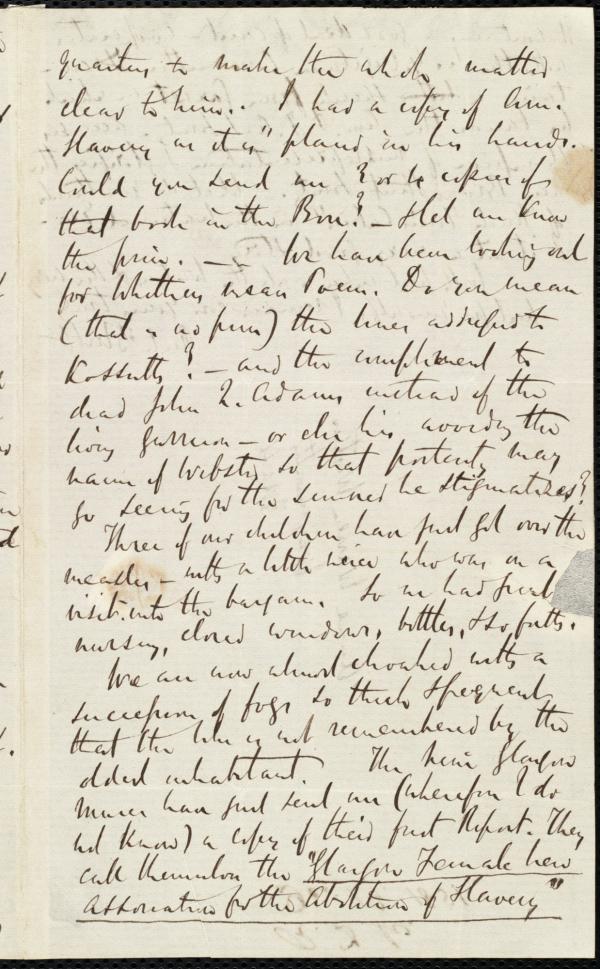 quarters to make the whole matter
clear to him. I had a copy of "Am.
Slavery as it is" placed in his hands.
Could you send me 3 or 4 copies of
that book in the Box? — & let me know
the price. — — We have been looking out
for Whittier's Poem. Do you mean
(that is no ) the lines addressed to
Kossuth? — and the compliment to
dead John Q. Adams instead of the
living Garrison — or else his avoiding the
name of Webster so that posterity may
go seeing for the sinner he stigmatizes?
Three of our children have just got over the
measles — with a little niece who was on a
visit into the bargain. So we had great
nursing, closed windows, bottles, & so forth.
We are now almost choaked with a
succession of fogs so thick & frequent
that the like is not remembered by the
oldest inhabitant. The new Glasgow
 have just sent me (wherefore I do
not know) a copy of their first Report. They
call themselves the "Glasgow Female New
Association for the Abolition of Slavery"